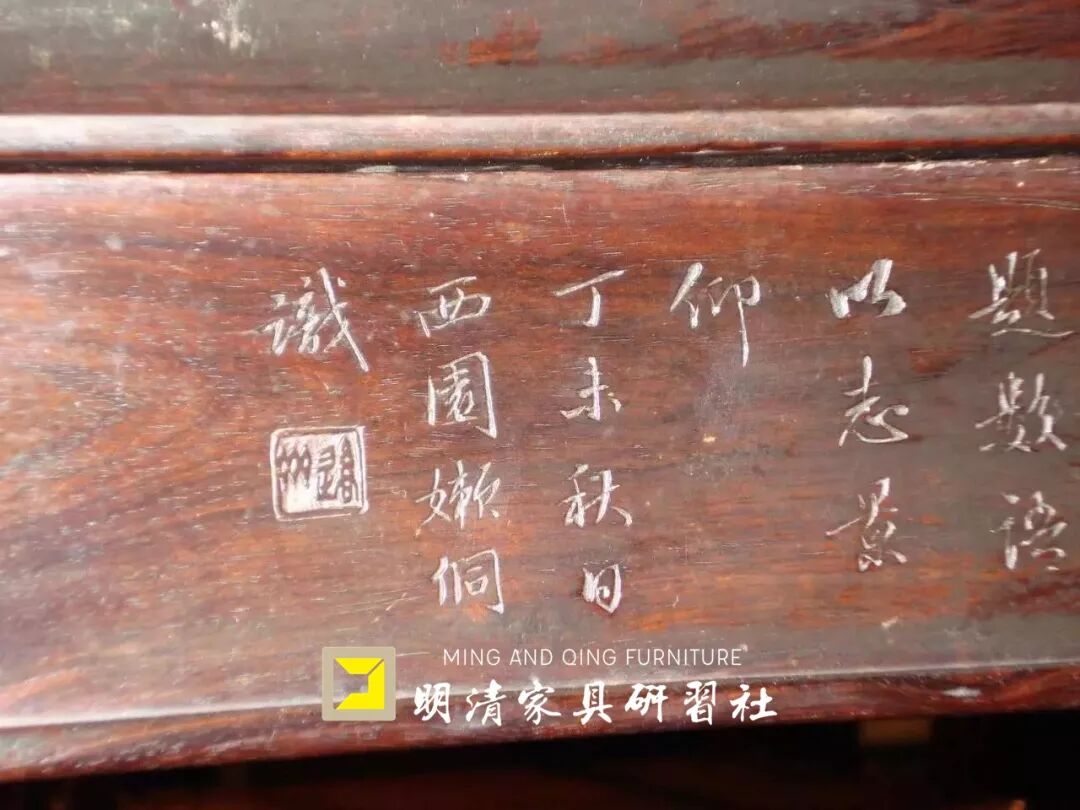 题数语
以志景
仰
丁未秋日
西园嬾侗
識
MING AND QING FURNITURE
明清家具研習社